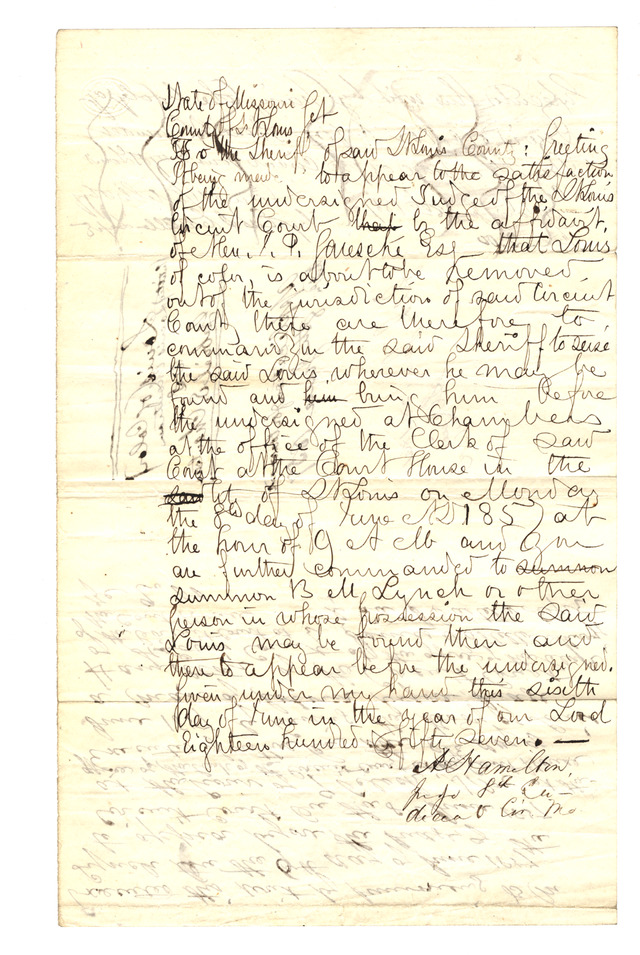 State of Missouri
County of St Louis Sct
To the Sheriff of said St Louis County: Greeting
It being made to appear to the satisfaction
of the undersigned Judge of the St Louis
Circuit Court that by the affidavit
of Esq that Louis
of color, is about to be removed
out of the jurisdiction of said Circuit
Court these are therefore to
command you the said sheriff to seise
the said Louis wherever he may be
found and him bring him before
the undersigned at Chambers
at the office of the Clerk of said
Court at the Court House in the
said City of St Louis on Monday
the 8th day of June AD 1857 at
the hour of 9 A M and you
are further commanded to summon
summon B M Lynch or other
person in whose possession the said
Louis may be found then and
there to appear before the undersigned.
Given under my hand this sixth
day of June in the year of our Lord
Eighteen hundred & fifty seven. —
A Hamilton,
judge 8th Ju-
dicial Cir. Mo